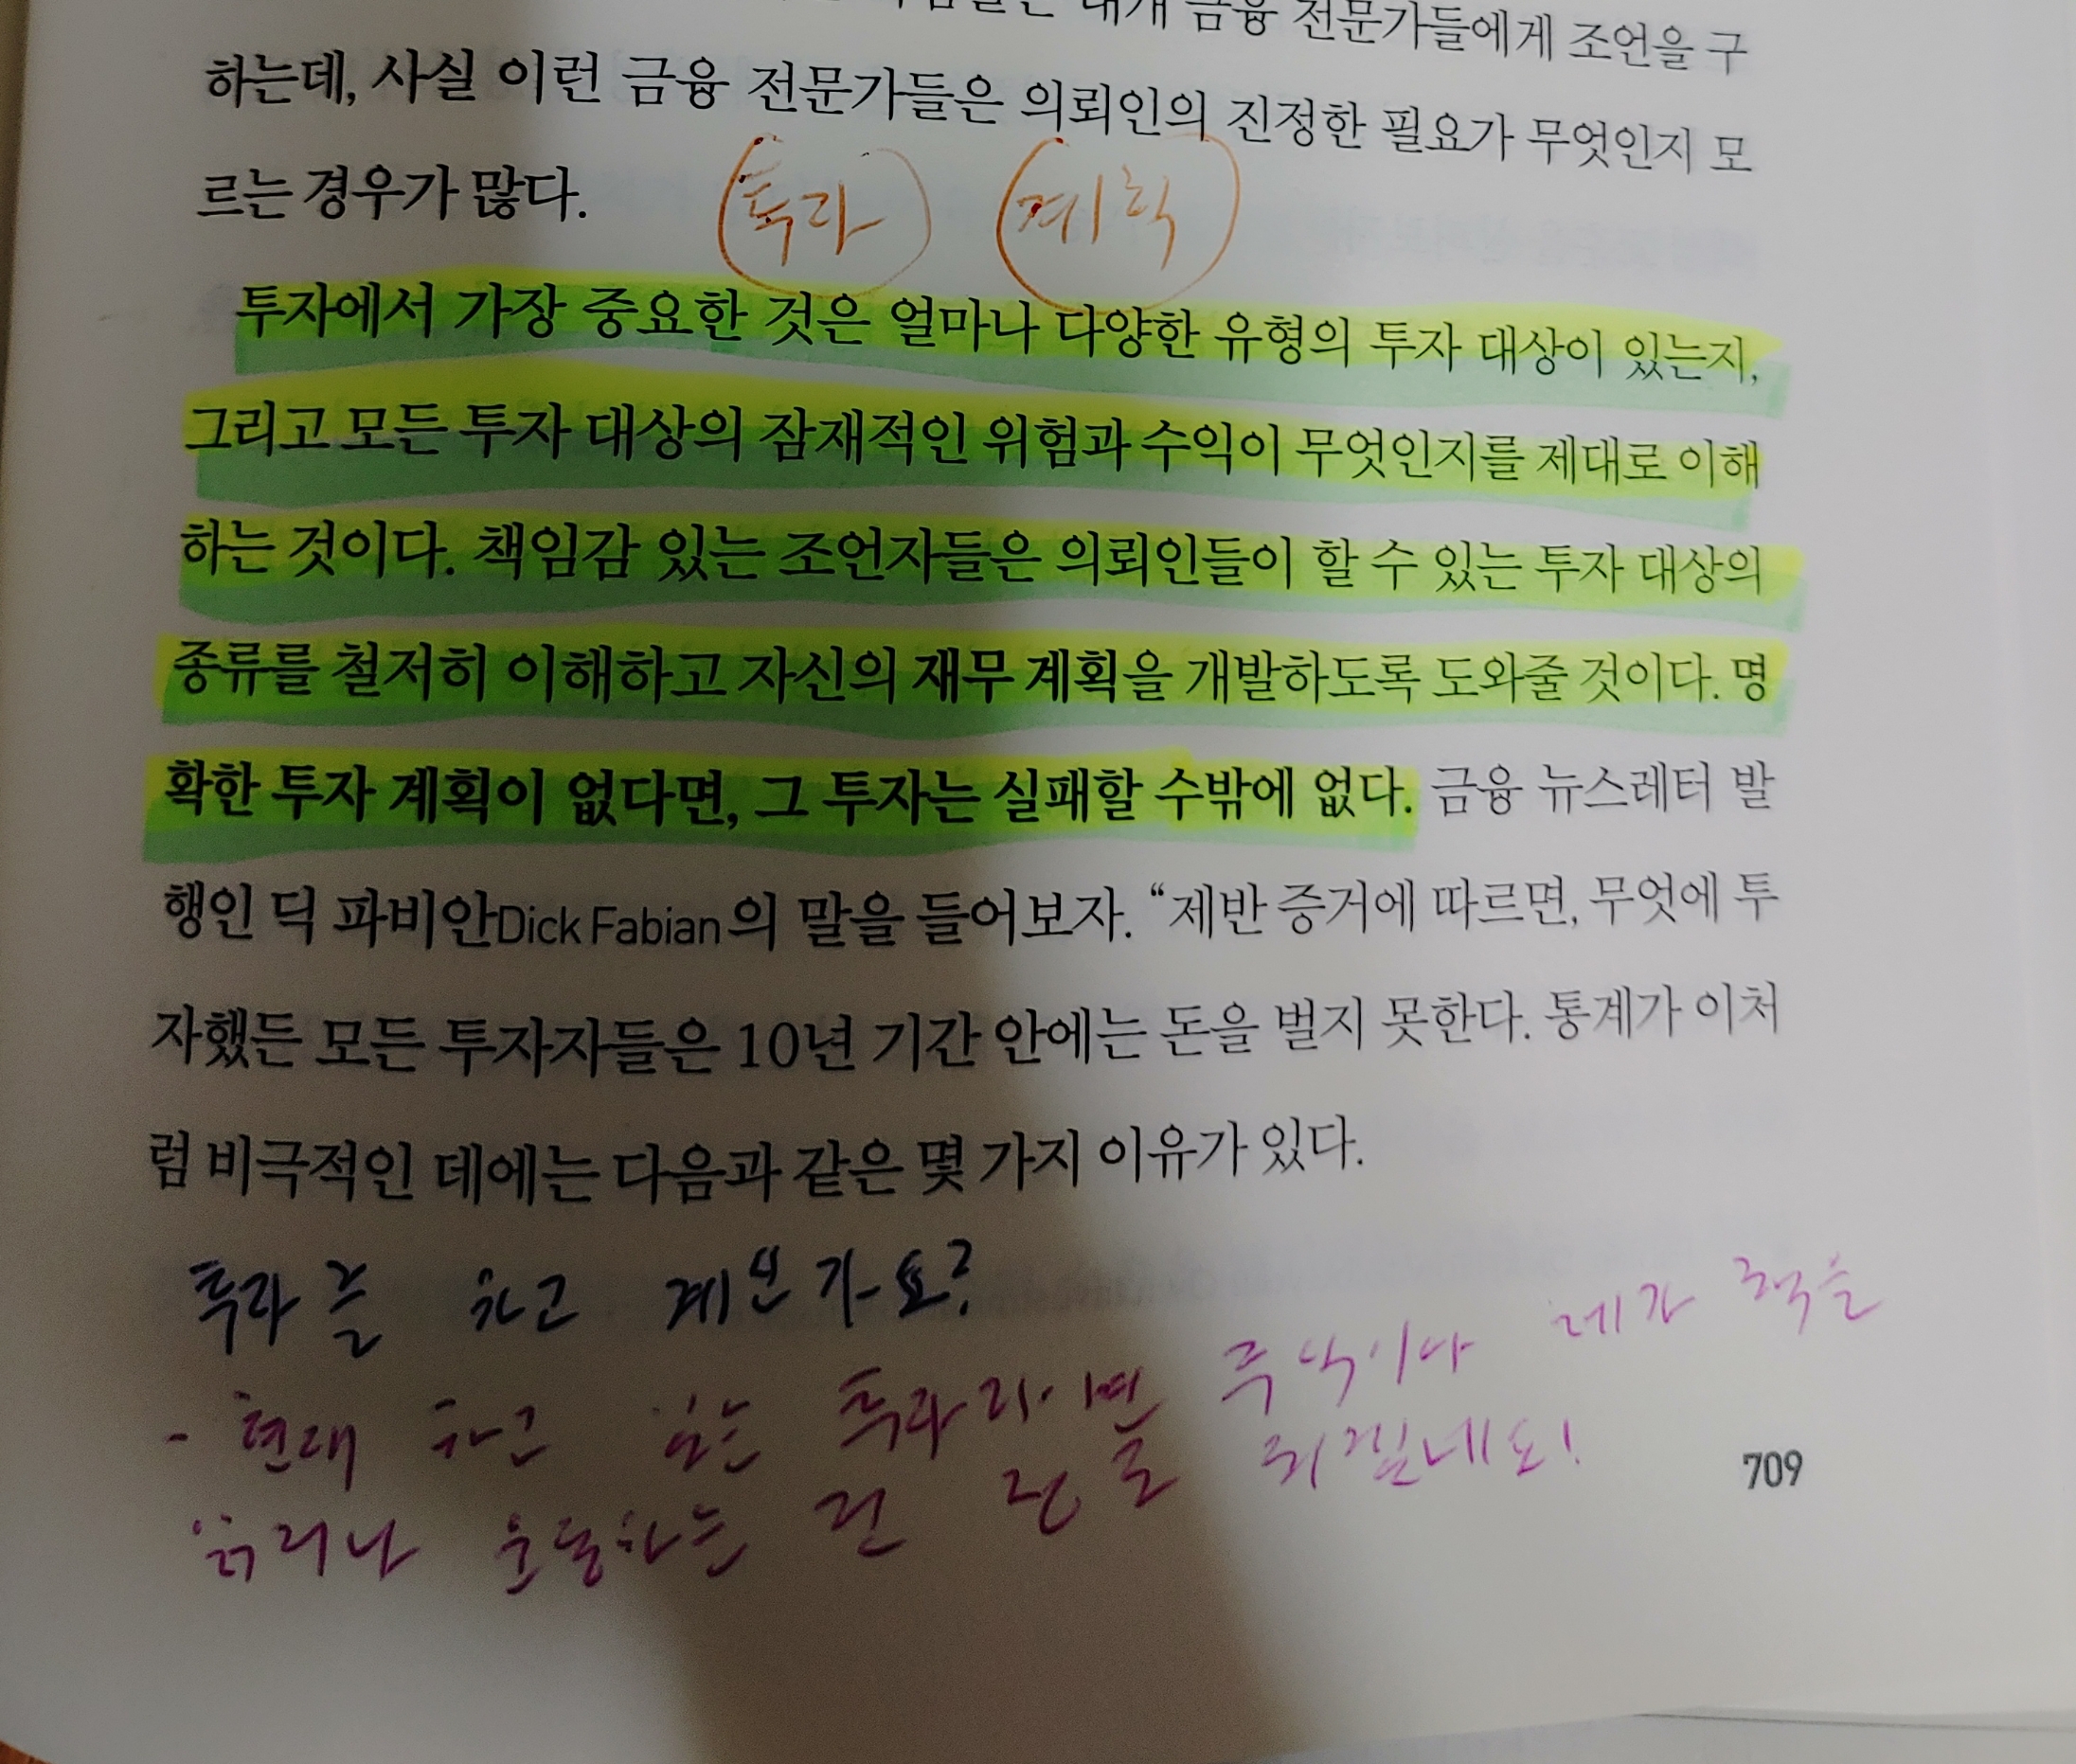 대개 금융 전문가들에게 조언을 구
하는데, 사실 이런 금융 전문가들은 의뢰인의 진정한 필요가 무엇인지 모
르는 경우가 많다.
투자 계획
투자에서 가장 중요한 것은 얼마나 다양한 유형의 투자 대상이 있는지,
그리고 모든 투자 대상의 잠재적인 위험과 수익이 무엇인지를 제대로 이해
하는 것이다. 책임감 있는 조언자들은 의뢰인들이 할 수 있는 투자 대상의
종류를 철저히 이해하고 자신의 재무 계획을 개발하도록 도와줄 것이다. 명
확한 투자 계획이 없다면, 그 투자는 실패할 수밖에 없다. 금융 뉴스레터 발
행인 딕 파비안Dick Fabian의 말을 들어보자. “제반 증거에 따르면, 무엇에 투
자했든 모든 투자자들은 10년 기간 안에는 돈을 벌지 못한다. 통계가 이처
럼 비극적인 데에는 다음과 같은 몇 가지 이유가 있다.
투자를 하고 계신가요?
- 현재 하고 있는 투자라면 주식이나 제가 책을
읽거나 운동하는 건
709